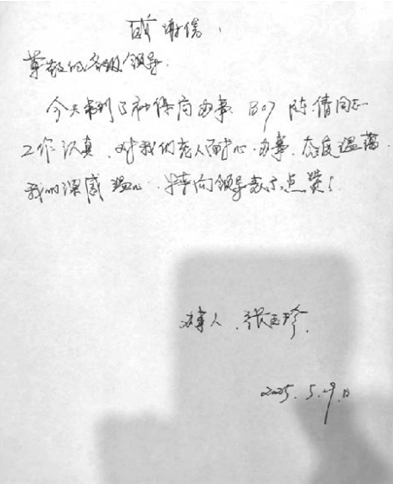 感谢信
尊敬的各级领导
今天来到了社保局办事 B07 陈倩同志
工作认真、对我们老人耐心、办事、态度温蔼
我们深感温心、特向领导表示点赞！
办事人、张玉珍
2025.5.29日